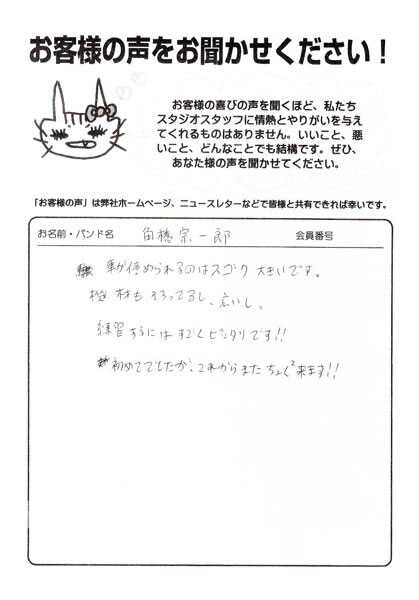 お客様の声をお聞かせください！
お客様の喜びの声を聞くほど、私たち
スタジオスタッフに情熱とやりがいを与え
てくれるものはありません。いいこと、悪
いこと、どんなことでも結構です。ぜひ、
あなた様の声を聞かせてください。
「お客様の声」は弊社ホームページ、ニュースレターなどで皆様と共有できれば幸いです。
お名前・バンド名 角橋宗一郎 会員番号
車が停められるのはスゴク大きいです。
機材もそろってるし、広いし。
練習するにはすごくピッタリです!!
初めてでしたが、これからまたちょくちょく来ます!!